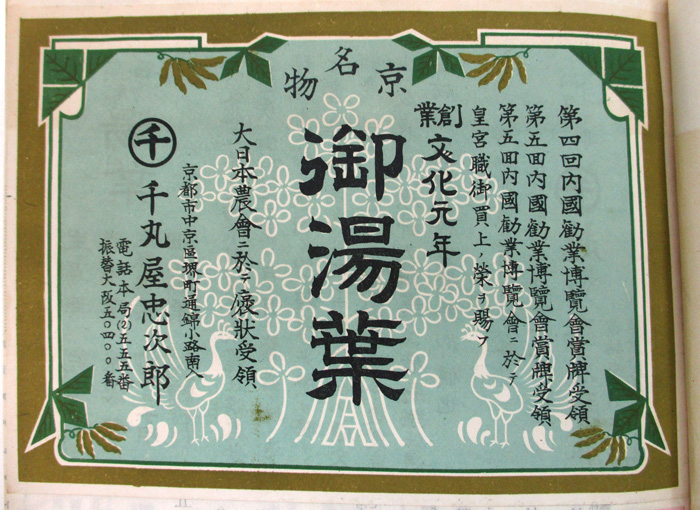 京名物
第四回内國勧業博覽會賞牌受領
第五回内國勧業博覽會賞牌受領
第五回内國勧業博覽會ニ於テ
皇宮職御買上ノ榮ヲ賜フ
創業
文化元年
御湯葉
大日本農會ニ於テ褒狀受領
京都市中京區堺町通錦小路南入
千 千丸屋忠次郎
電話本局(2)五五五番
振替大阪五〇四〇〇番